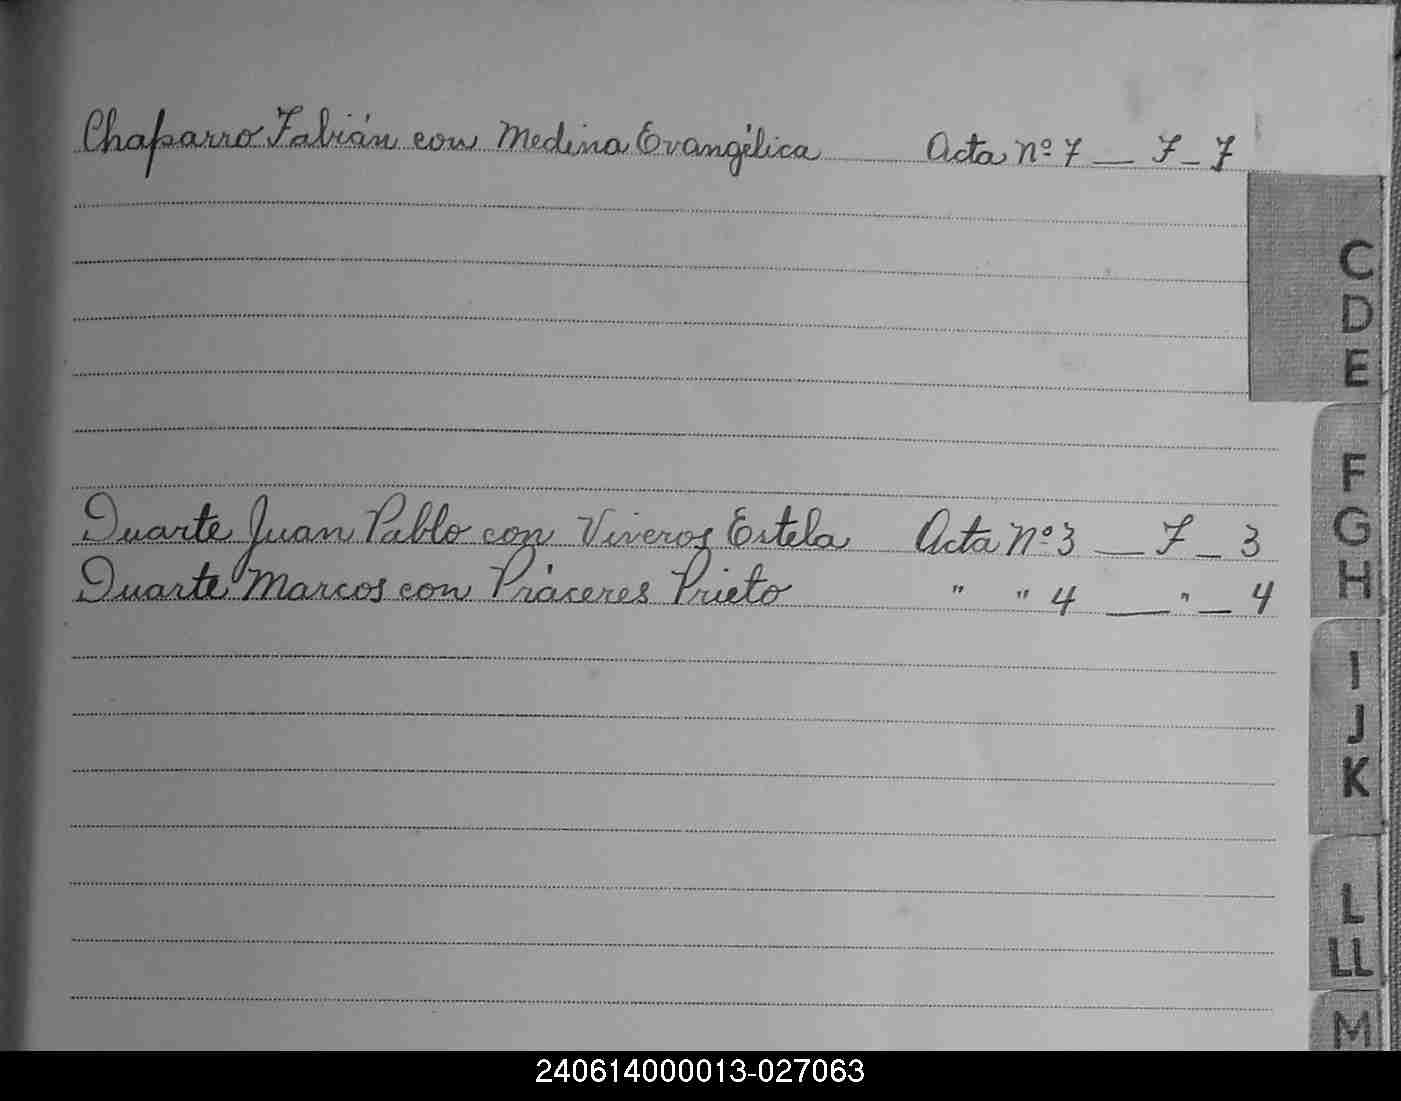 Chaparro Fabián con Medina Evangélica Acta nº 7 — F - 7
C
D
E
F
G
H
Duarte Juan Pablo con Viveros Estela Acta nº 3 — F - 3
Duarte Marcos con Pláceres Prieto " " 4 — " — 4
I
J
K
L
LL
M
240614000013-027063